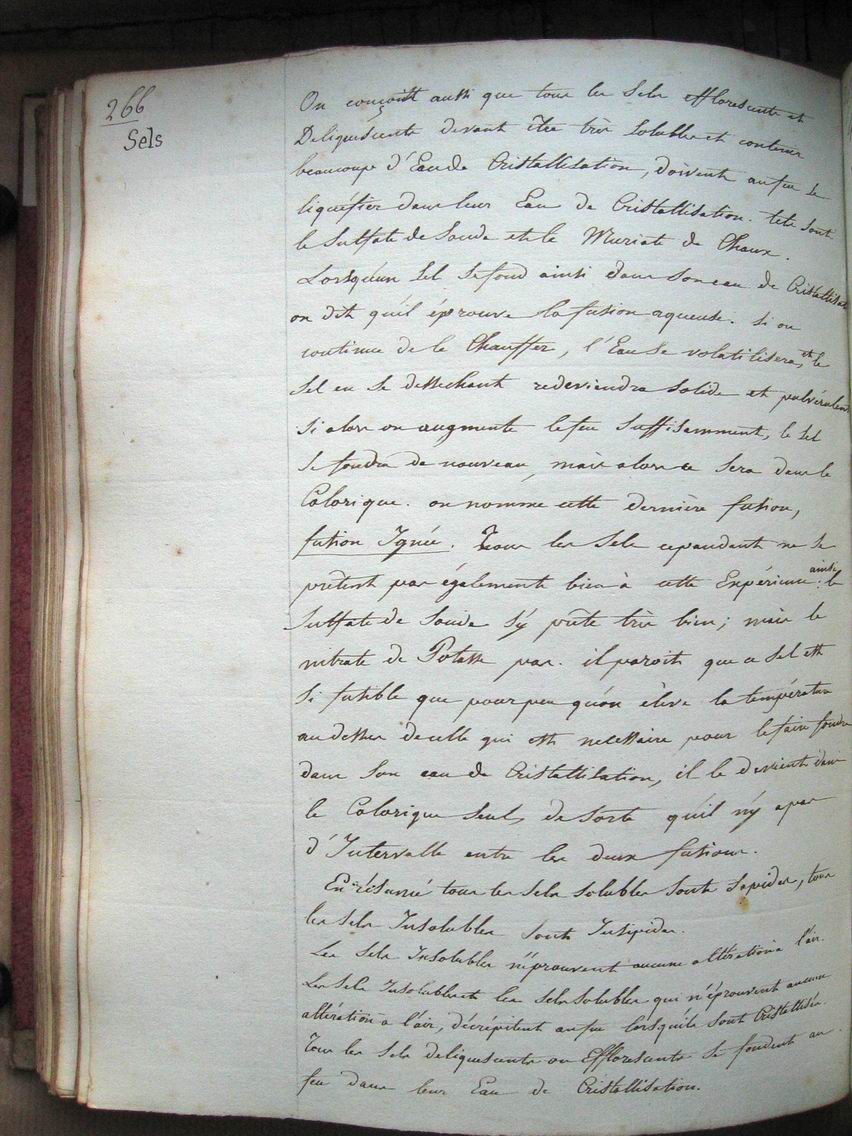 266
Sels
On conçoitt aussi que tous les Sels efflorescents et
Deliquescents devant être très Solubles et contenir
beaucoup d'Eau de Cristallisation, doivent au feu se
liquéfier dans leur Eau de Cristallisation. tels sont
le Sulfate de Soude et le Muriate de Chaux.
Lorsqu'un Sel se fond ainsi dans son eau de Cristallisation
on dit qu'il éprouve la fusion aqueuse. Si on
continue de le Chauffer, l'Eau se volatilisera, et le
Sel en se dessechant redeviendra Solide et pulvérulent
Si alors on augmente le feu Suffisamment, le Sel
Se fondra de nouveau, mais alors ce sera dans le
Calorique. on nomme cette dernière fusion,
fusion Ignée. Tous les Sels cependant ne se
prêtent pas également bien à cette Expérience. ainsi le
Sulfate de Soude s'y prête très bien; mais le
nitrate de Potasse pas. il paroit que ce Sel est
Si fusible que pour peu qu'on élève la température
au dessus de celle qui est nécessaire pour le faire fondre
dans Son eau de Cristallisation, il le devient dans
le Calorique Seul, de Sorte qu'il n'y a pas
d'Intervalle entre les deux fusions.
En résumé tous les Sels solubles Sont Sapides, tous
les Sels Insolubles Sont Insipides.
Les Sels Insolubles n'éprouvent aucune altération à l'air.
Les Sels Insolubles et les Sels Solubles qui n'éprouvent aucune
altération à l'air, décrépitent au feu lorsqu'ils sont Cristallisés.
Tous les Sels deliquescents ou Efflorescents Se fondent au
feu dans leur Eau de Cristallisation.